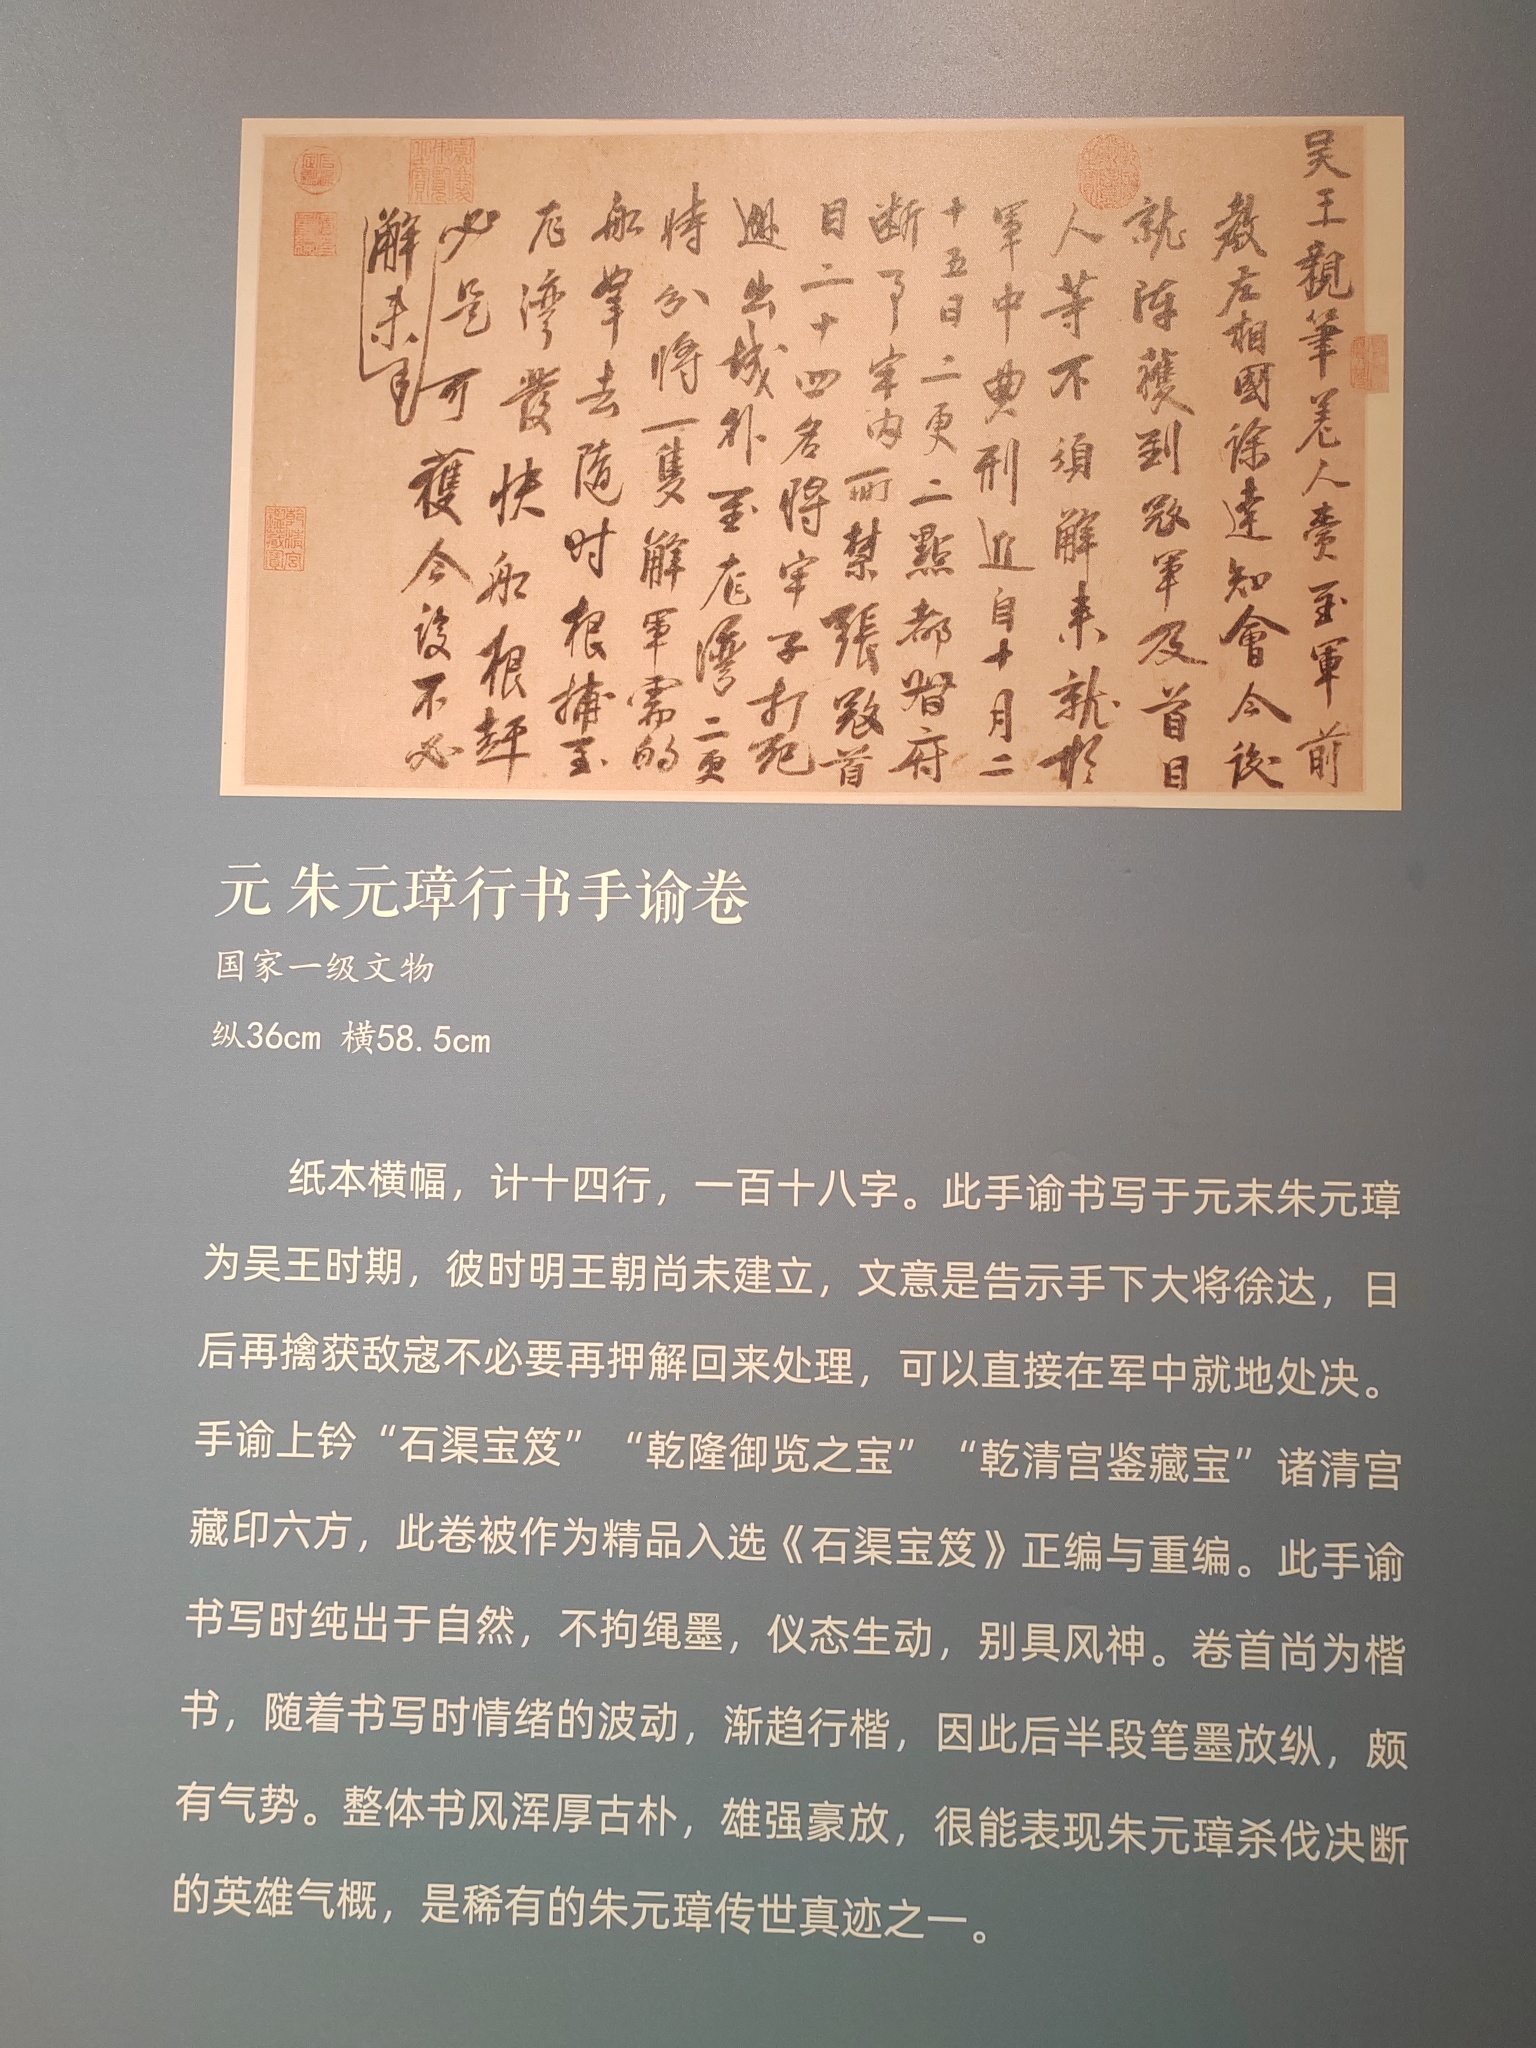 吴王親筆差人賫至軍前
教左相國徐達知會今後
就陣獲到寇軍及首目
人等不須解来就於
軍中典刑近自十月二
十五日二更二點都督府
断了牢内所禁張寇首
目二十四名將牢子打死
越出城外至龙灣二更
時分將一隻解軍需的
船拿去隨时根捕至
龙灣發快船根赶
必是可獲今後不必
解来
元 朱元璋行书手谕卷
国家一级文物
纵36cm 横58.5cm
纸本横幅，计十四行，一百十八字。此手谕书写于元末朱元璋
为吴王时期，彼时明王朝尚未建立，文意是告示手下大将徐达，日
后再擒获敌寇不必要再押解回来处理，可以直接在军中就地处决。
手谕上钤“石渠宝笈” “乾隆御览之宝” “乾清宫鉴藏宝”诸清宫
藏印六方，此卷被作为精品入选《石渠宝笈》正编与重编。此手谕
书写时纯出于自然，不拘绳墨，仪态生动，别具风神。卷首尚为楷
书，随着书写时情绪的波动，渐趋行楷，因此后半段笔墨放纵，颇
有气势。整体书风浑厚古朴，雄强豪放，很能表现朱元璋杀伐决断
的英雄气概，是稀有的朱元璋传世真迹之一。